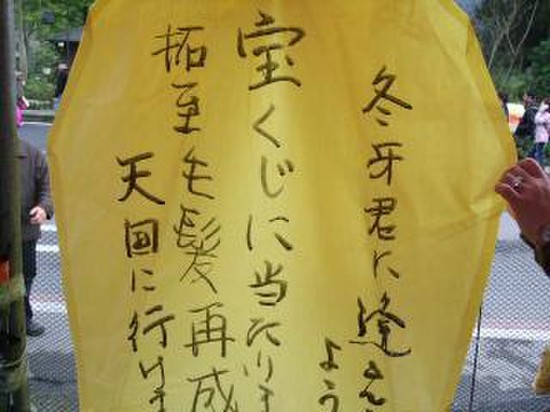 冬牙君に逢えま
よう
宝くじに当たりま
拓至毛髪再成
天国に行けま